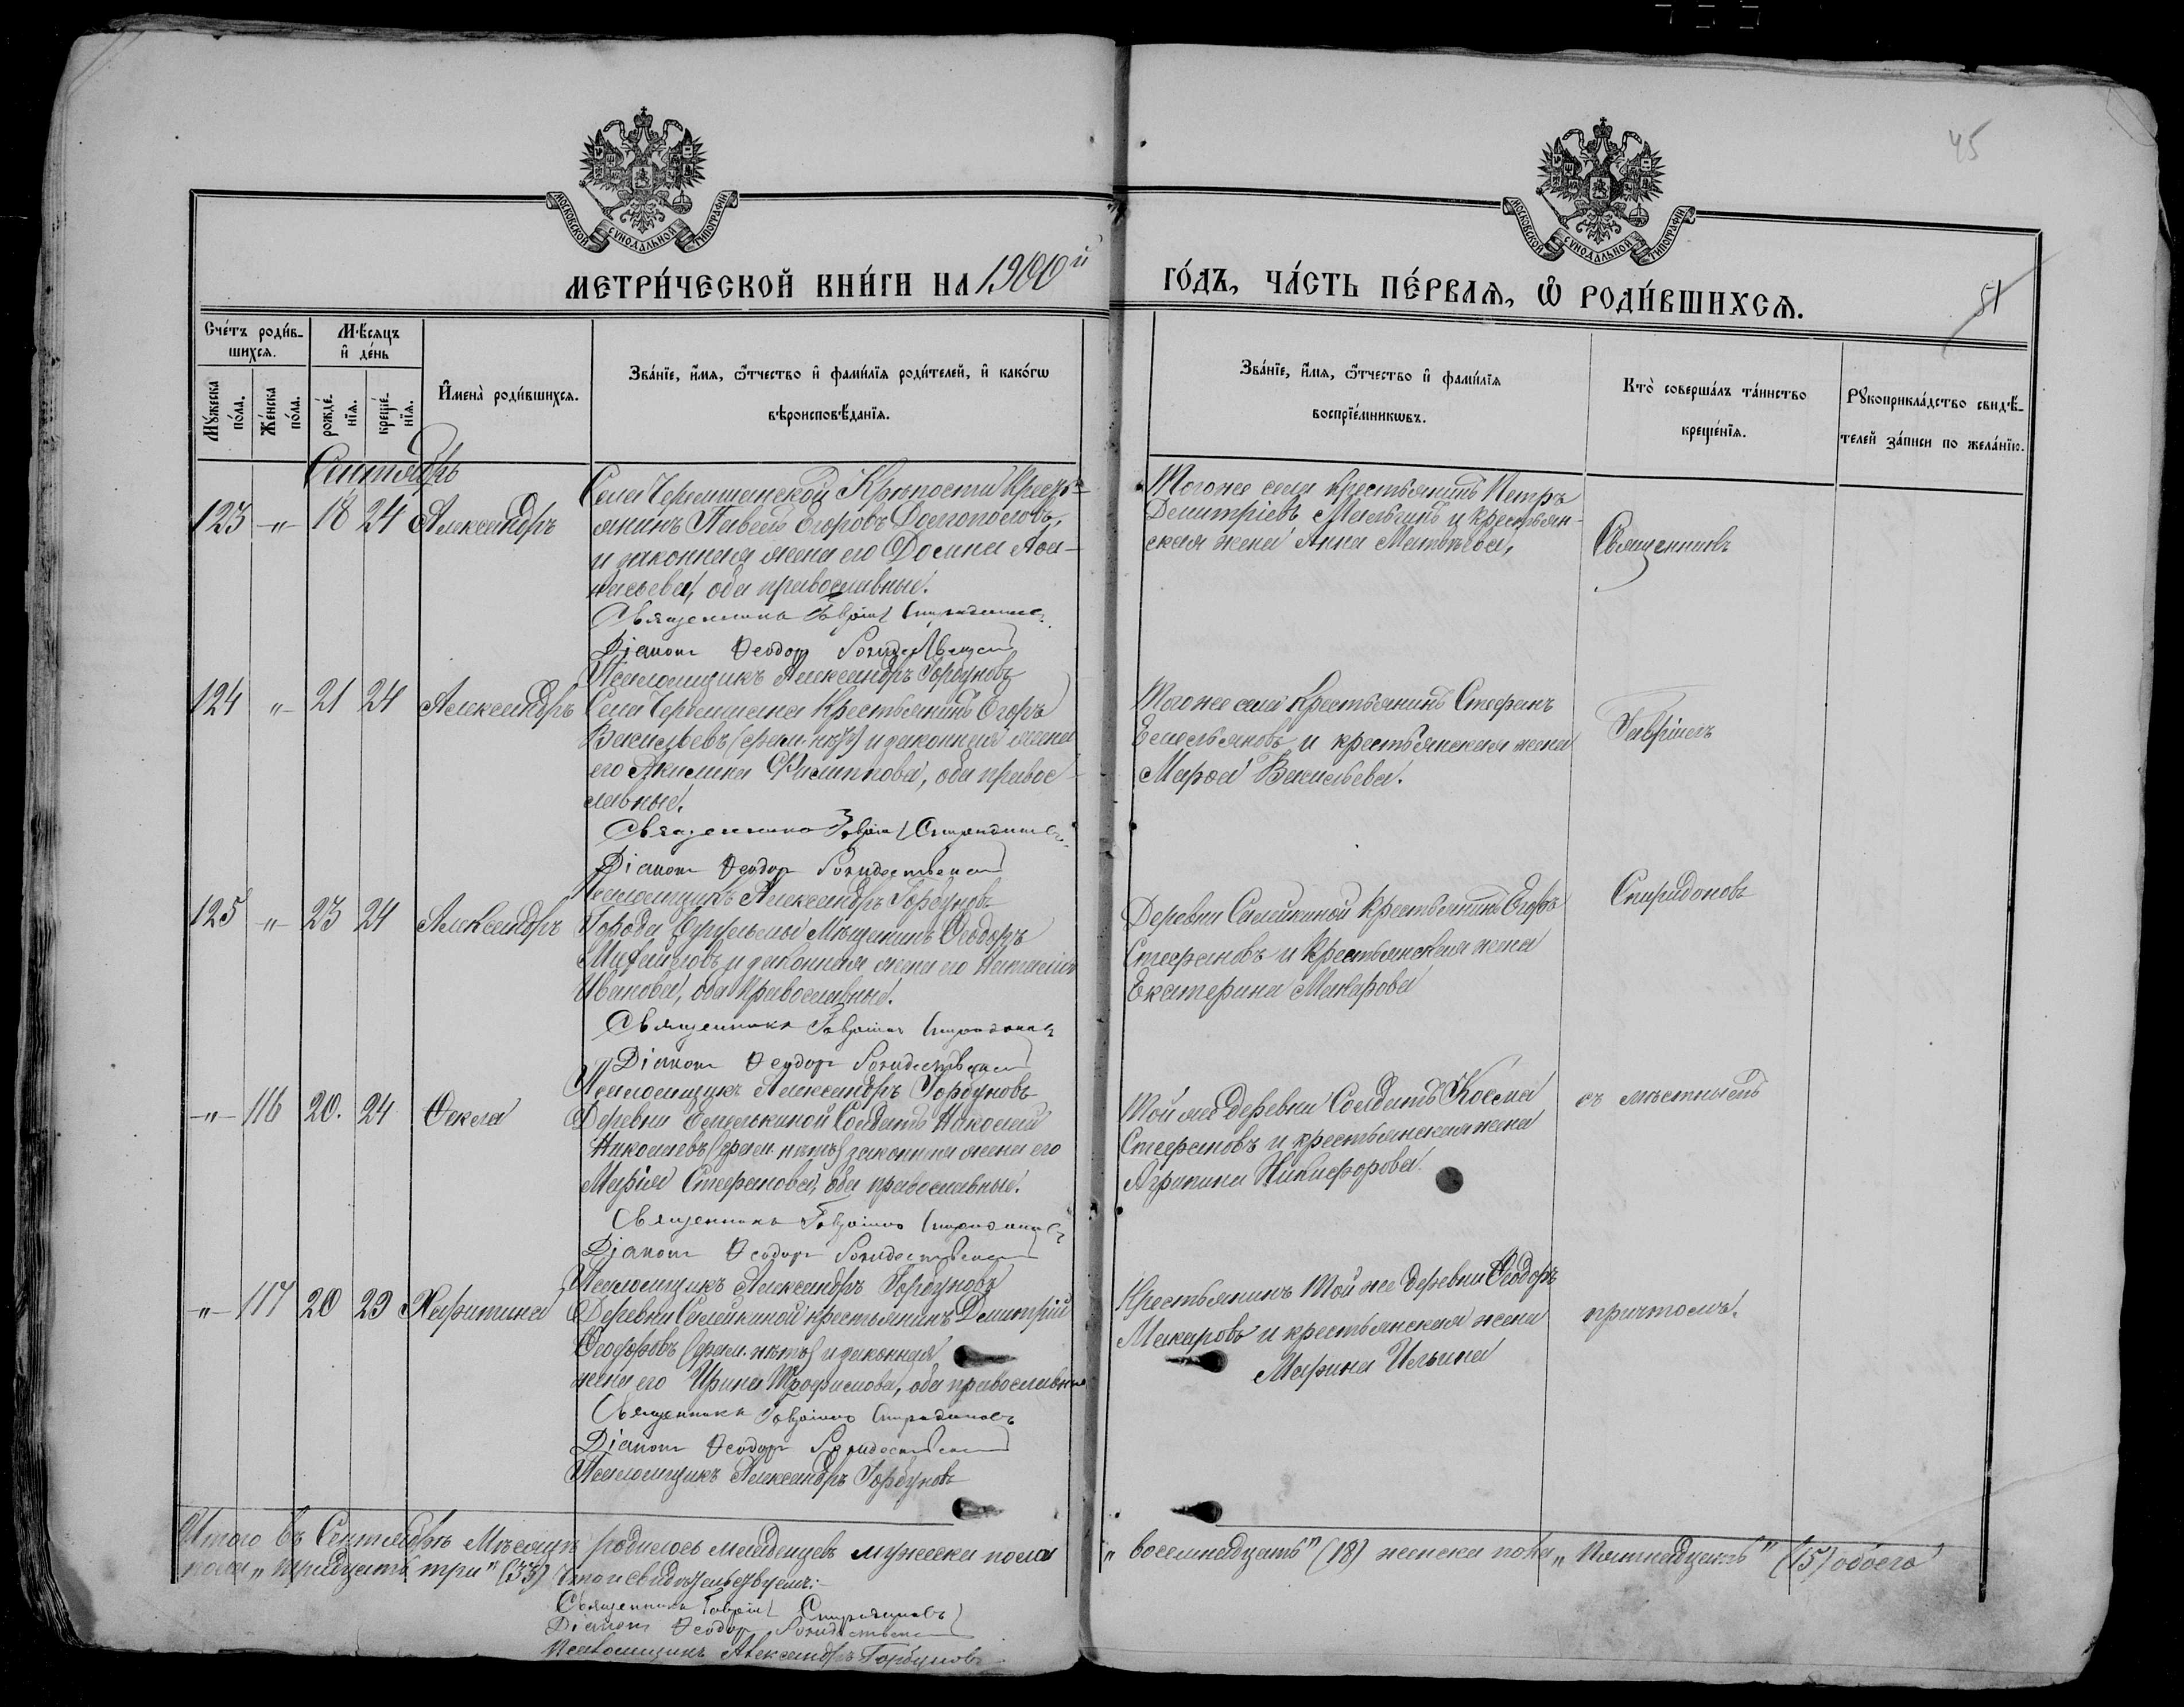 45
МОСКОВСКОЙ СѴНОДАЛЬНОЙ ТИПОГРАФІИ
МОСКОВСКОЙ СѴНОДАЛЬНОЙ ТИПОГРАФІИ
МЕТРИ́ЧЕСКОЙ КНИ́ГИ НА 1900й
ГО́ДЪ, ЧА́СТЬ ПЕ́РВАѦ, Ѽ РОДИ́ВШИХСѦ.
51
Сче́тъ роди́в-
шихсѧ.
Мꙋ́жеска
по́ла.
Же́нска
по́ла.
Мѣ́сѧцъ
и҆ де́нь
рожде́-
нїѧ.
креще́-
нїѧ.
И҆мена̀ роди́вшихсѧ.
Зва́нїе, и҆́мѧ, ѻ҆́тчество и҆ фами́лїѧ роди́телей, и҆ како́гѡ
вѣроисповѣ́данїѧ.
Зва́нїе, и҆́мѧ, ѻ҆́тчество и҆ фами́лїѧ
воспрїе́мникѡвъ.
Кто̀ соверша́лъ та́инство
креще́нїѧ.
Рꙋкоприкла́дство свидѣ́-
телей за́писи по жела́нїю.
Сентябрь
123 -"- 18 24 Александръ
Села Черемшанской Крѣпости Кресть-
янинъ Павелъ Егоровъ Долгополовъ,
и законная жена его Домна Аѳа-
насьева, оба православные.
Священникъ Гавріилъ Спиридоновъ
Діаконъ Ѳеодоръ Рождественскій
Псаломщикъ Александръ Горбуновъ
Тогоже села крестьянинъ Петръ
Димитріевъ Мальгинъ и крестьян-
ская жена Анна Матвѣева,
Священникъ
124 " 21 24 Александръ
Села Черемшана Крестьянинъ Егоръ
Васильевъ (фам. нѣтъ) и законная жена
его Акилина Филиппова, оба правос-
лавные.
Священникъ Гавріилъ Спиридоновъ
Діаконъ Ѳеодоръ Рождественскій
Псаломщикъ Александръ Горбуновъ
Тогоже села крестьянинъ Стефанъ
Емельяновъ и крестьянская жена
Марѳа Васильева.
Гавріилъ
125 -"- 23 24 Александръ
Города Мѣщанинъ Ѳеодоръ
Михайловъ и законная жена его Наталія
Иванова, оба православные.
Священникъ Гавріилъ Спиридоновъ
Діаконъ Ѳеодоръ Рождественскій
Псаломщикъ Александръ Горбуновъ
Деревни Семейкиной Крестьянинъ Егоръ
Стефановъ и крестьянская жена
Екатерина Макарова
Спиридоновъ
-"- 116 20. 24 Ѳекла
Деревни Емелькиной Солдатъ Николай
Николаевъ (фам. нѣтъ) законная жена его
Марія Стефанова, оба православные.
Священникъ Гавріилъ Спиридоновъ
Діаконъ Ѳеодоръ Рождественскій
Псаломщикъ Александръ Горбуновъ
Той же деревни Солдатъ Косма
Стефановъ и крестьянская жена
Агрипина Никифорова.
съ мѣстнымъ
-"- 117 20 29 Харитина
Деревни Семейкиной крестьянинъ Димитрій
Ѳеодоровъ (фам. нѣтъ) и законная
жена его Ирина Трофимова, оба православные
Священникъ Гавріилъ Спиридоновъ
Діаконъ Ѳеодоръ Рождественскій
Псаломщикъ Александръ Горбуновъ
Крестьянинъ той же деревни Ѳеодоръ
Макаровъ и крестьянская жена
Марина Ильина
причтомъ.
Итого въ Сентябрѣ Мѣсяцѣ родилось младенцевъ мужеска пола „восемнадцать" (18) женска пола „пятнадцать" (15) обоего
пола „тридцать три" (33)
Въ томъ свидѣтельствуемъ:
Священникъ Гавріилъ Спиридоновъ
Діаконъ Ѳеодоръ Рождественскій
Псаломщикъ Александръ Горбуновъ